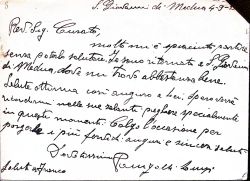 8
S. Giovanni di Medua 4-9-
Rev. Sig. Curato,
molto mi è spiaciuto partire
senza poterlo salutare. Io sono ritornato a S. Giovanni
di Medua, dove mi trovo abbastanza bene.
Salute ottima così auguro a lei, spero vorrà
ricordarmi nelle sue salute preghiere specialmente
in questi momenti. Colgo l'occasione per
porgerle i più fervidi auguri e sinceri saluti
Devotissimo
Saluti a Franco